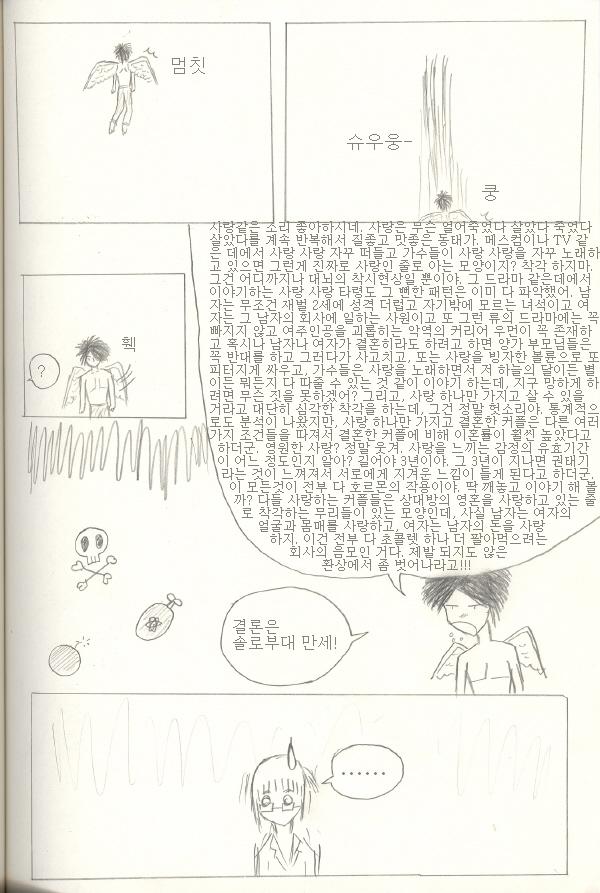 멈칫
슈우웅-
쿵
사랑같은 소리 좋아하시네. 사랑은 무슨 얼어죽었다 살았다 죽었다
살았다를 계속 반복해서 질좋고 맛좋은 동태가. 메스컴이나 TV 같
은 데에서 사랑 사랑 자꾸 떠들고 가수들이 사랑 사랑을 자꾸 노래하
고 있으면 그런게 진짜로 사랑인 줄로 아는 모양이지? 착각 하지마.
그건 어디까지나 대뇌의 착시현상일 뿐이야. 그 드라마 같은데에서
이야기하는 사랑 사랑 타령도 그 뻔한 패턴은 이미 다 파악했어, 남
자는 무조건 재벌 2세에 성격 더럽고 자기밖에 모르는 녀석이고 여
자는 그 남자의 회사에 일하는 사원이고 또 그런 류의 드라마에는 꼭
빠지지 않고 여주인공을 괴롭히는 악역의 커리어 우먼이 꼭 존재하
고 혹시나 남자와 여자가 결혼이라도 하려고 하면 양가 부모님들은
꼭 반대를 하고, 그러다가 사고치고, 또는 사랑을 빙자한 불륜으로 또
피터지게 싸우고, 가수들은 사랑을 노래하면서 저 하늘의 달이든 별
이든 뭐든지 다 따줄 수 있는 것 같이 이야기 하는데, 지구 망하게 하
려면 무슨 짓을 못하겠어? 그리고, 사랑 하나만 가지고 살 수 있을
거라고 대단히 심각한 착각을 하는데, 그건 정말 헛소리야. 통계적으
로도 분석이 나왔지만, 사랑 하나만 가지고 결혼한 커플은 다른 여러
가지 조건들을 따져서 결혼한 커플에 비해 이혼률이 훨씬 높았다고
하더군. 영원한 사랑? 정말 웃겨. 사랑을 느끼는 감정의 유효기간
이 어느 정도인지 알아? 길어야 3년이야. 그 3년이 지나면 권태기
라는 것도 느껴져서 서로에게 지겨운 느낌이 들게 된다고 하더군.
이 모든 것이 전부 다 호르몬의 작용이야. 딱 깨놓고 이야기 해 볼
까? 다들 사랑하는 커플들은 상대방의 영혼을 사랑하고 있는 줄
로 착각하는 무리들이 있는 모양인데, 사실 남자는 여자의
얼굴과 몸매를 사랑하고, 여자는 남자의 돈을 사랑
하지. 이건 전부 다 초콜렛 하나 더 팔아먹으려는
회사의 음모인 거다. 제발 되지도 않은
환상에서 좀 벗어나라고!!!
홱
?
결론은
솔로부대 만세!
......